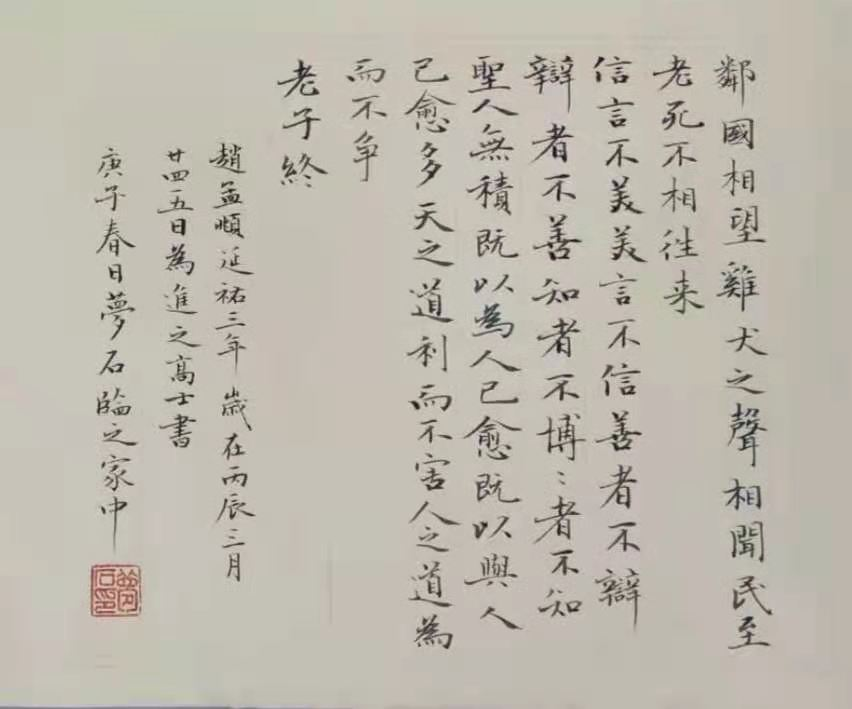 鄰國相望雞犬之聲相聞民至
老死不相往来
信言不美美言不信善者不辯
辯者不善知者不博〻者不知
聖人無積既以為人已愈既以與人
已愈多天之道利而不害人之道為
而不争
老子終
趙孟順延祐三年歲在丙辰三月
廿四五日為進之高士書
庚子春日夢石臨之家中